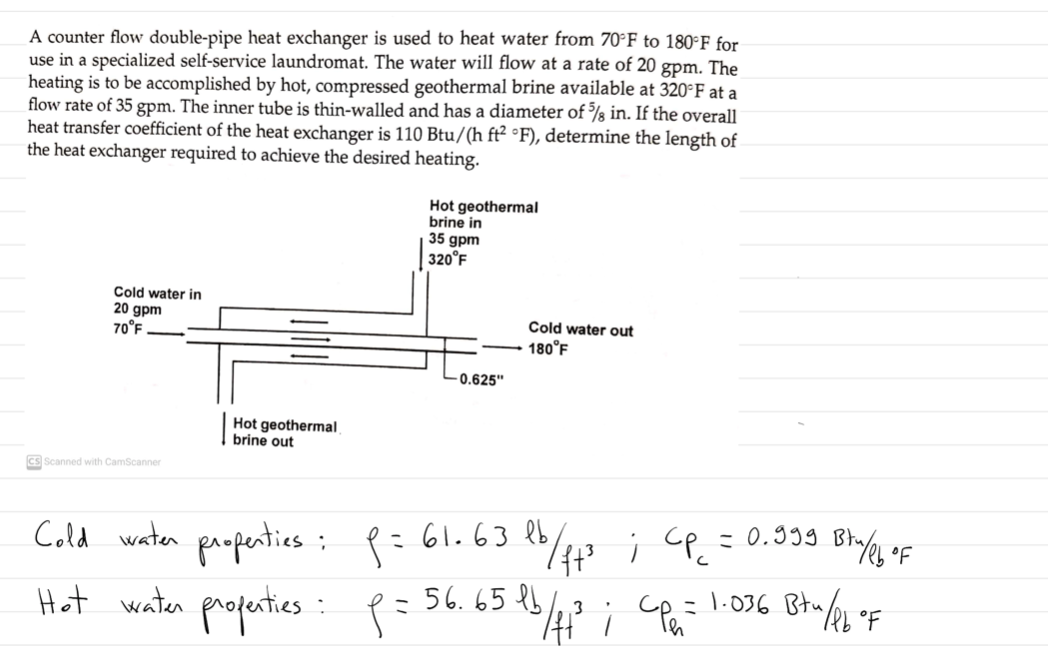 A counter flow double-pipe heat exchanger is used to heat water from 70°F to 180°F for
use in a specialized self-service laundromat. The water will flow at a rate of 20 gpm. The
heating is to be accomplished by hot, compressed geothermal brine available at 320°F at a
flow rate of 35 gpm. The inner tube is thin-walled and has a diameter of ⅝ in. If the overall
heat transfer coefficient of the heat exchanger is 110 Btu/(h ft² °F), determine the length of
the heat exchanger required to achieve the desired heating.
Hot geothermal
brine in
35 gpm
320°F
Cold water in
20 gpm
70°F
Cold water out
180°F
0.625"
Hot geothermal
brine out
CS Scanned with CamScanner
Cold water properties: ρ = 61.63 lb/ft³ ; Cp_c = 0.999 Btu/lb °F
Hot water properties: ρ = 56.65 lb/ft³ ; Cp_h = 1.036 Btu/lb °F